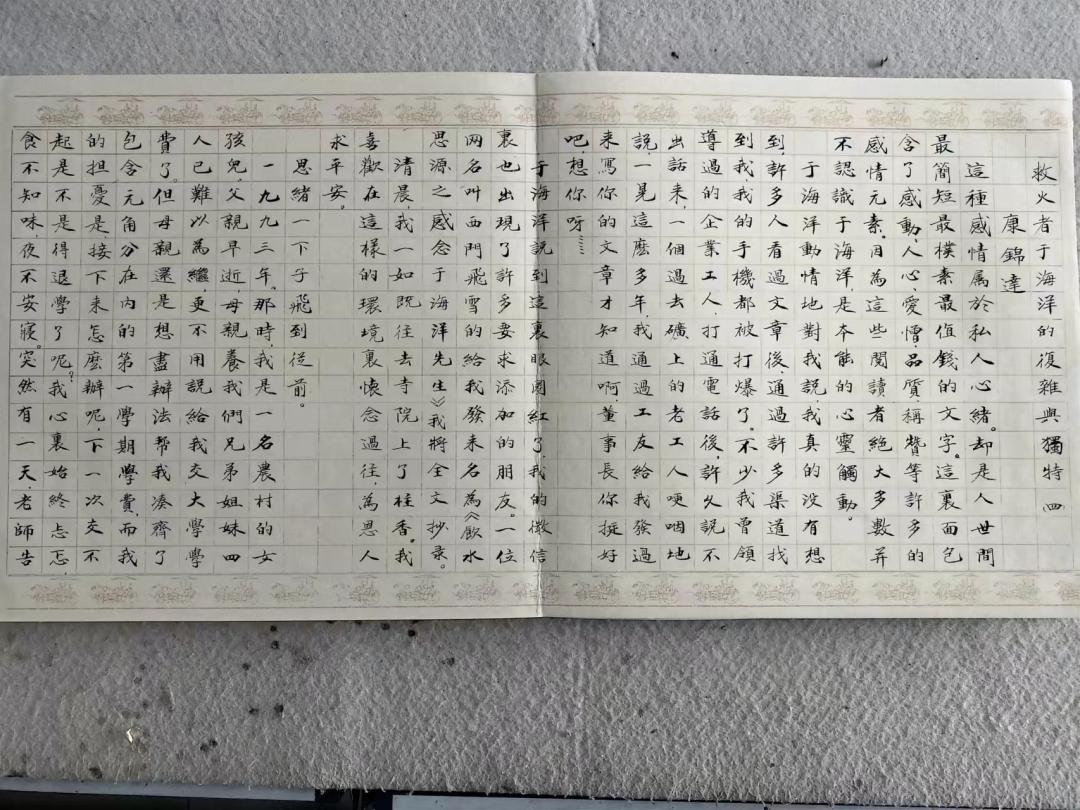 救火者于海洋的復雜與獨特 四
康錦達
這種感情属於私人心緒。却是人世間
最簡短最樸素最值錢的文字。這裏面包
含了感動,人心,愛憎,品質稱贊等許多的
感情元素。因為這些閱讀者絕大多數并
不認識于海洋,是本能的心靈觸動。
于海洋動情地對我説,我真的没有想
到許多人看過文章後通過許多渠道找
到我,我的手機都被打爆了。不少我曾領
導過的企業工人,打通電話後,許久説不
出話来,一個過去礦上的老工人哽咽地
説,一晃這麽多年,我通過工友給我發過
来寫你的文章才知道啊,董事長你挺好
吧,想你呀……
于海洋説到這裏眼圈紅了,我的微信
裏也出現了許多要求添加的朋友。一位
网名叫西門飛雪的給我發来名為《飲水
思源之感念于海洋先生》我將全文抄录。
清晨,我一如既往去寺院上了柱香。我
喜歡在這樣的環境裏懷念過往,為恩人
求平安。
思緒一下子飛到從前。
一九九三年。那時,我是一名農村的女
孩兒。父親早逝,母親養我們兄弟姐妹四
人已難以為繼,更不用説給我交大學學
費了。但母親還是想盡辦法帮我凑齊了
包含元角分在内的第一學期學費,而我
的担憂是接下来怎麽辦呢,下一次交不
起是不是得退學了呢?我心裏始終忐忑,
食不知味,夜不安寢。突然有一天,老師告